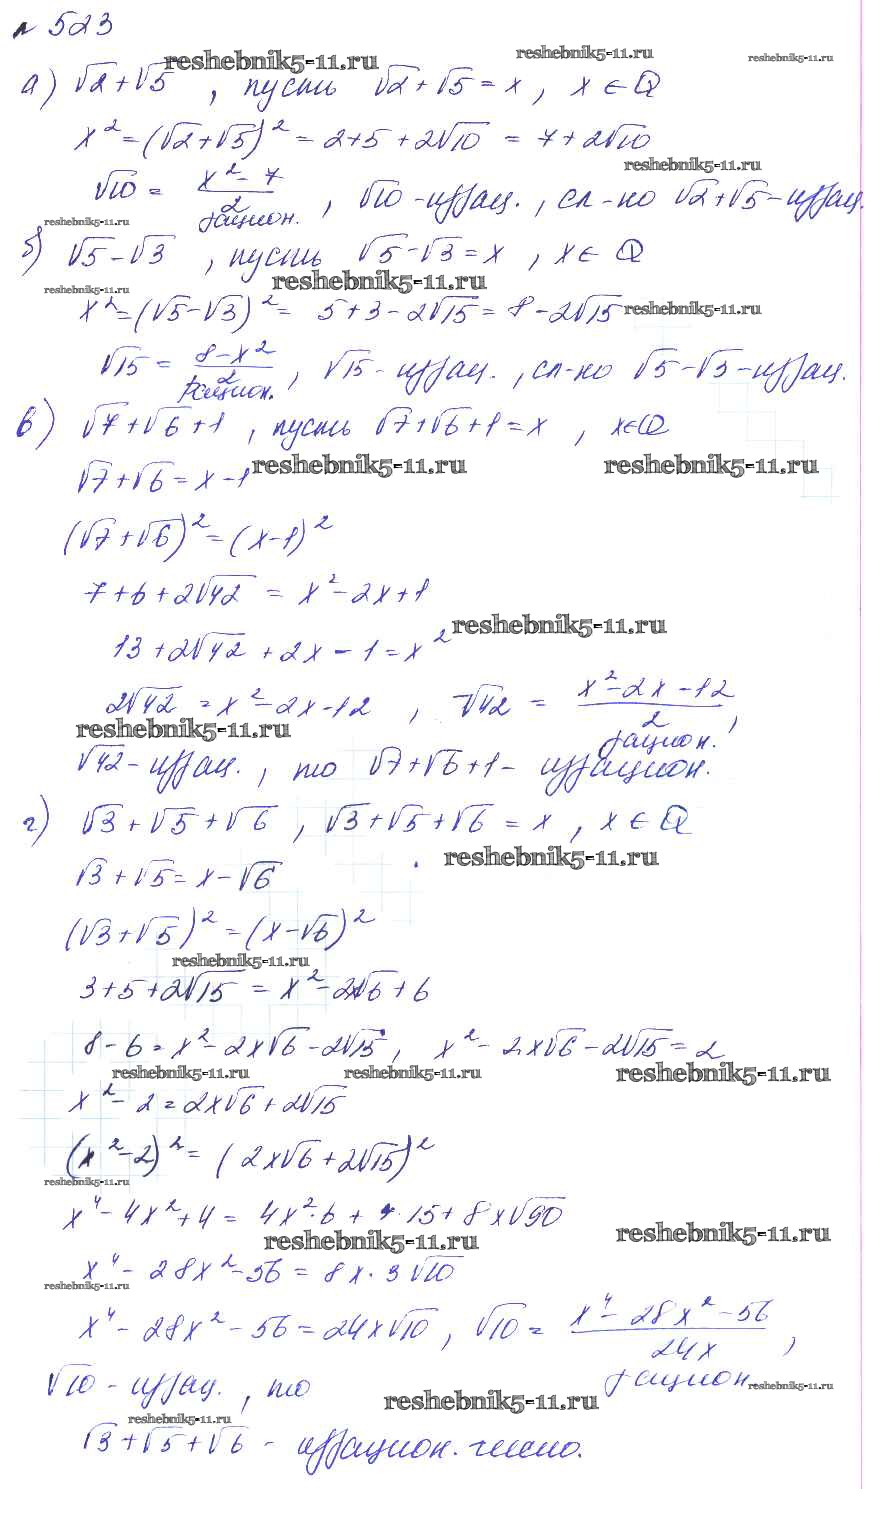 № 523
reshebnik5-11.ru reshebnik5-11.ru reshebnik5-11.ru
а) √2+√5 , пусть √2+√5 = x , x ∈ Q
x² = (√2+√5)² = 2+5+2√10 = 7+2√10
reshebnik5-11.ru
√10 = (x²-7)/2 , √10 - иррац. , сл-но √2+√5 - иррац.
рацион.
reshebnik5-11.ru
б) √5-√3 , пусть √5-√3 = x , x ∈ Q
reshebnik5-11.ru
reshebnik5-11.ru
x² = (√5-√3)² = 5+3-2√15 = 8-2√15
reshebnik5-11.ru
√15 = (8-x²)/2 , √15 - иррац. , сл-но √5-√3 - иррац.
рацион.
в) √7+√6+1 , пусть √7+√6+1 = x , x∈Q
reshebnik5-11.ru reshebnik5-11.ru
√7+√6 = x-1
(√7+√6)² = (x-1)²
7+6+2√42 = x²-2x+1
reshebnik5-11.ru
13+2√42+2x-1 = x²
2√42 = x²-2x-12 , √42 = (x²-2x-12)/2 ,
reshebnik5-11.ru
рацион.
√42 - иррац. , то √7+√6+1 - иррацион.
г) √3+√5+√6 , √3+√5+√6 = x , x ∈ Q
reshebnik5-11.ru
√3+√5 = x-√6
(√3+√5)² = (x-√6)²
reshebnik5-11.ru
3+5+2√15 = x²-2x√6+6
8-6 = x²-2x√6-2√15 , x²-2x√6-2√15 = 2
reshebnik5-11.ru reshebnik5-11.ru reshebnik5-11.ru
x²-2 = 2x√6+2√15
(x²-2)² = (2x√6+2√15)²
reshebnik5-11.ru
x⁴-4x²+4 = 4x²·6+4·15+8x√90
reshebnik5-11.ru reshebnik5-11.ru
x⁴-28x²-56 = 8x·3√10
reshebnik5-11.ru
x⁴-28x²-56 = 24x√10 , √10 = (x⁴-28x²-56)/24x ,
рацион
reshebnik5-11.ru
√10 - иррац. , то
reshebnik5-11.ru
reshebnik5-11.ru
√3+√5+√6 - иррацион. число.